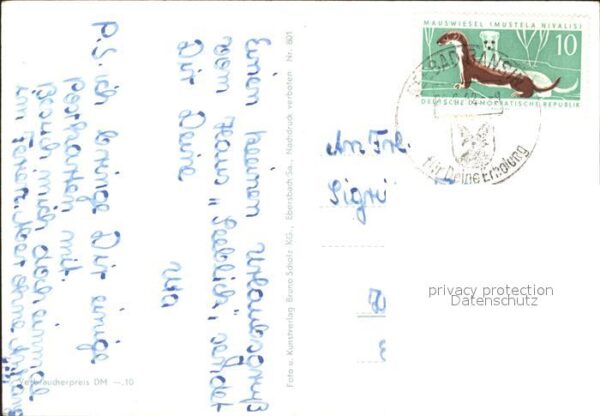 Einen kleinen Urlaubsgruß
vom Haus „Seeblick", sendet
Dir Deine
Uta
P.S. ich bringe Dir einige
Postkarten mit.
Besuch mich doch einmal
Verbraucherpreis DM –.10
Foto u. Kunstverlag Bruno Scholz KG., Ebersbach Sa., Nachdruck verboten Nr. 801
MAUSWIESEL (MUSTELA NIVALIS)
10
DEUTSCHE DEMOKRATISCHE REPUBLIK
für Deine Erholung
An Frl.
Sigri
privacy protection
Datenschutz